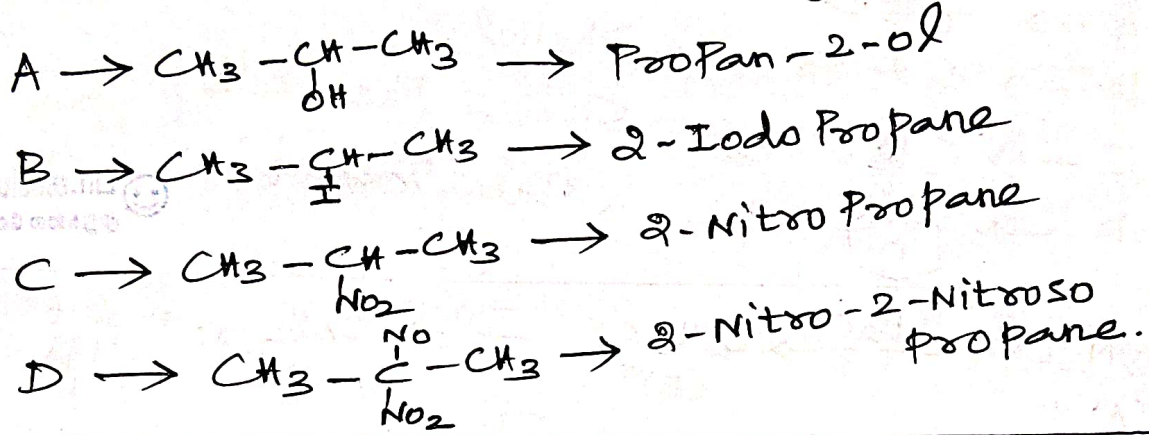 A → CH3 - CH - CH3 → Propan - 2 - ol
OH
B → CH3 - CH - CH3 → 2 - Iodo Propane
I
C → CH3 - CH - CH3 → 2 - Nitro Propane
NO2
NO
D → CH3 - C - CH3 → 2 - Nitro - 2 - Nitroso
propane.
NO2